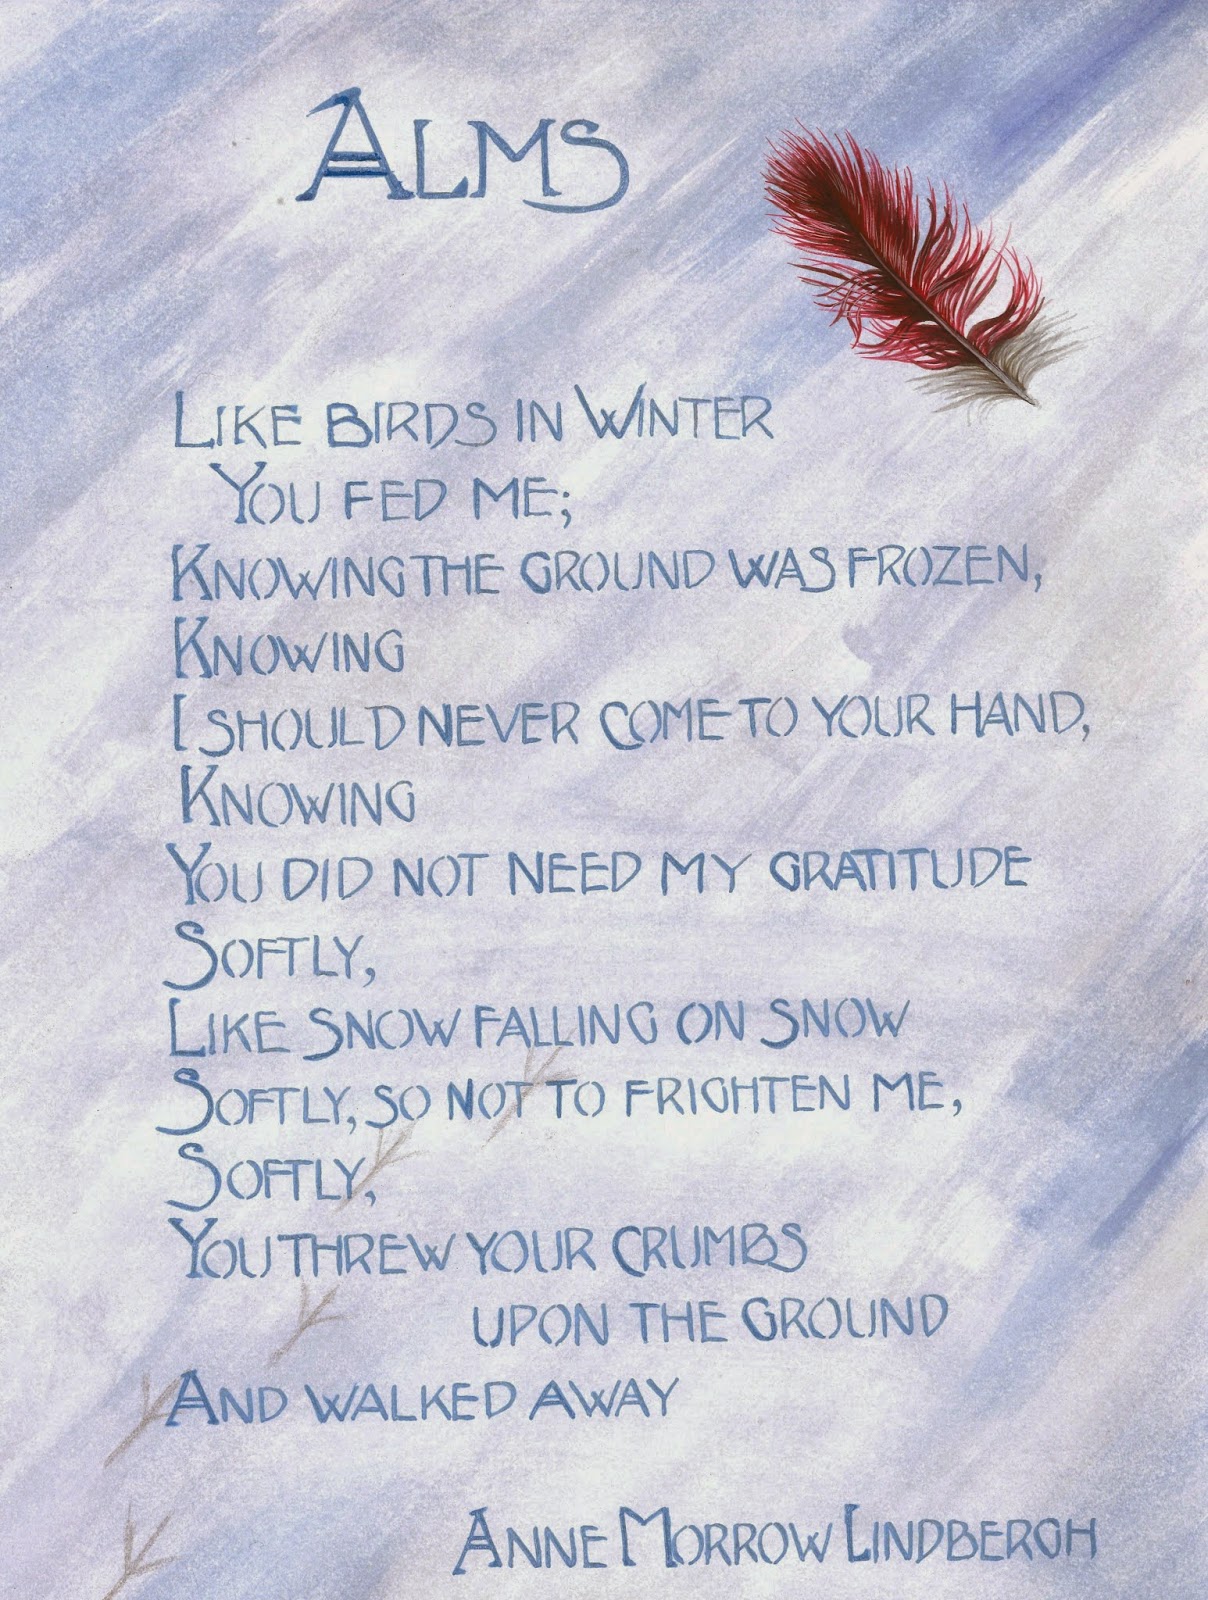 ALMS
LIKE BIRDS IN WINTER
YOU FED ME;
KNOWING THE GROUND WAS FROZEN,
KNOWING
I SHOULD NEVER COME TO YOUR HAND,
KNOWING
YOU DID NOT NEED MY GRATITUDE
SOFTLY,
LIKE SNOW FALLING ON SNOW
SOFTLY, SO NOT TO FRIGHTEN ME,
SOFTLY,
YOU THREW YOUR CRUMBS
UPON THE GROUND
AND WALKED AWAY
ANNE MORROW LINDBERGH